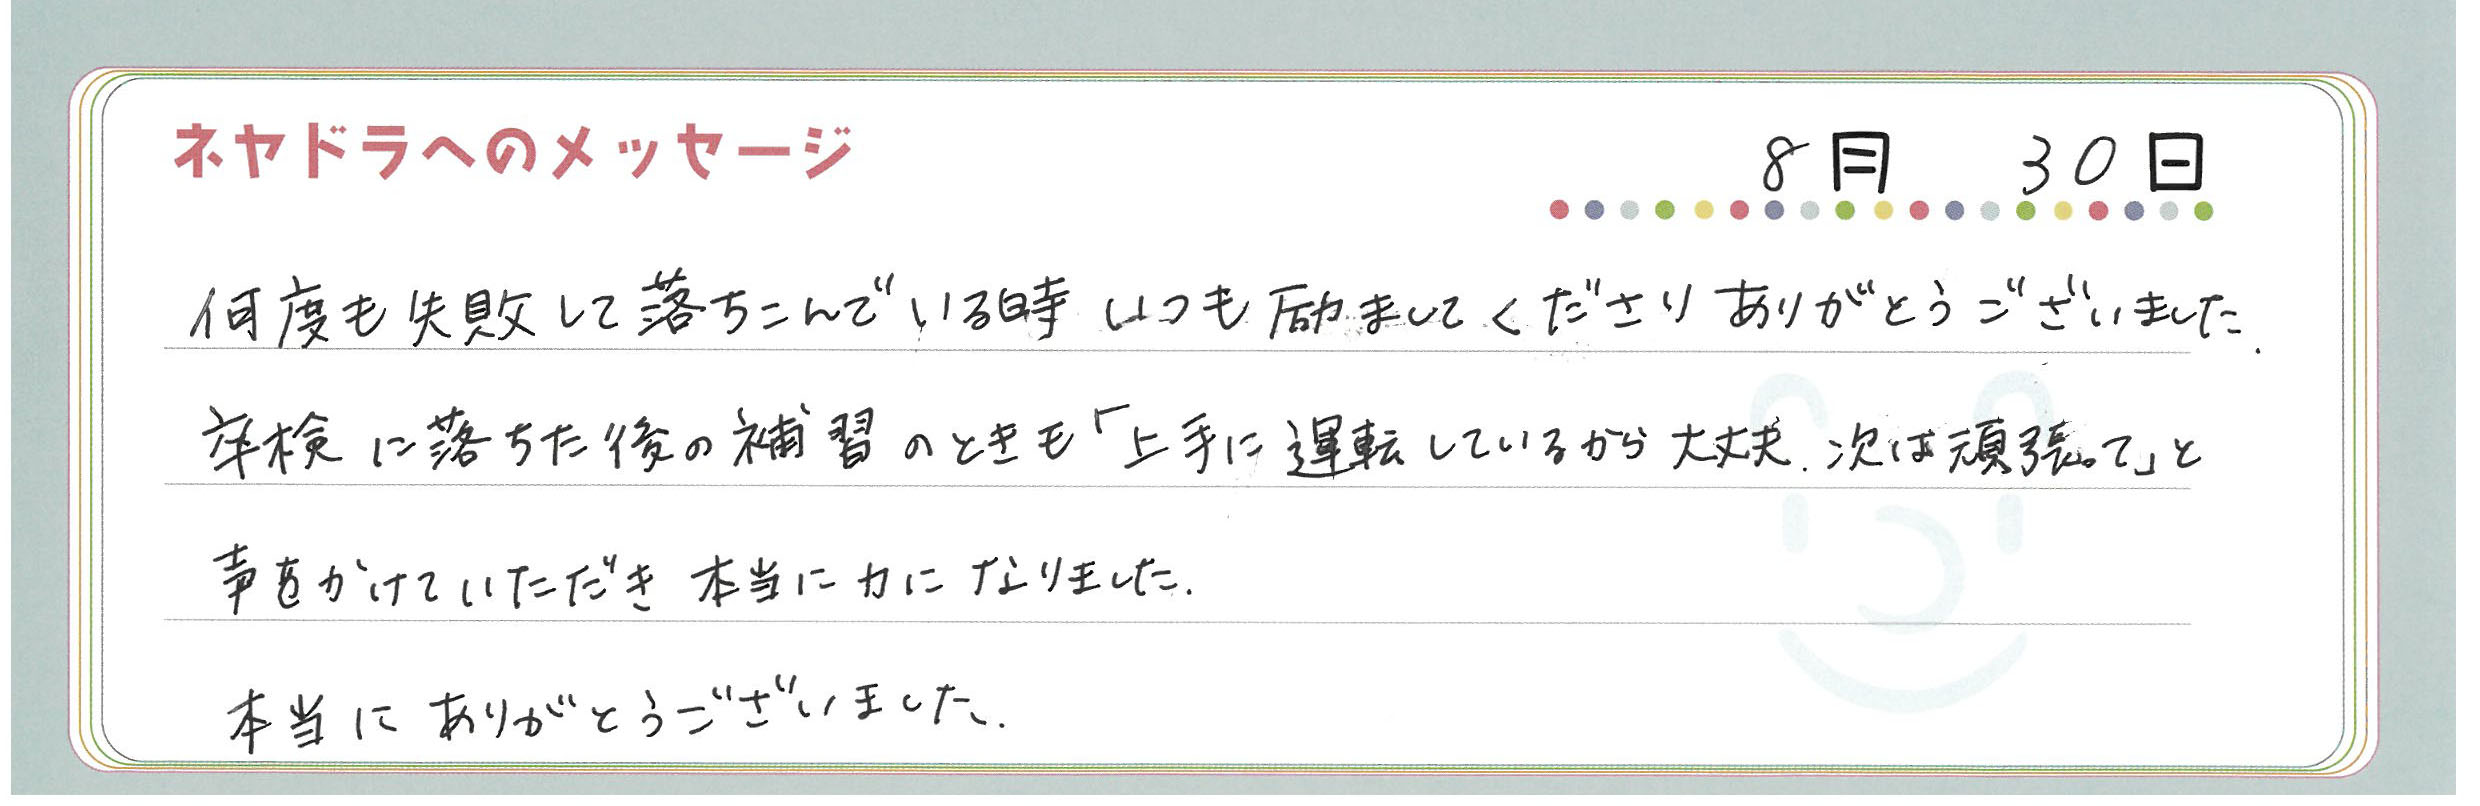 ネヤドラへのメッセージ
8月 30日
何度も失敗して落ちこんでいる時 いつも励ましてくださり ありがとうございました.
卒検に落ちた後の補習のときも「上手に運転しているから大丈夫.次は頑張って」と
声をかけていただき 本当に力に なりました.
本当に ありがとうございました.